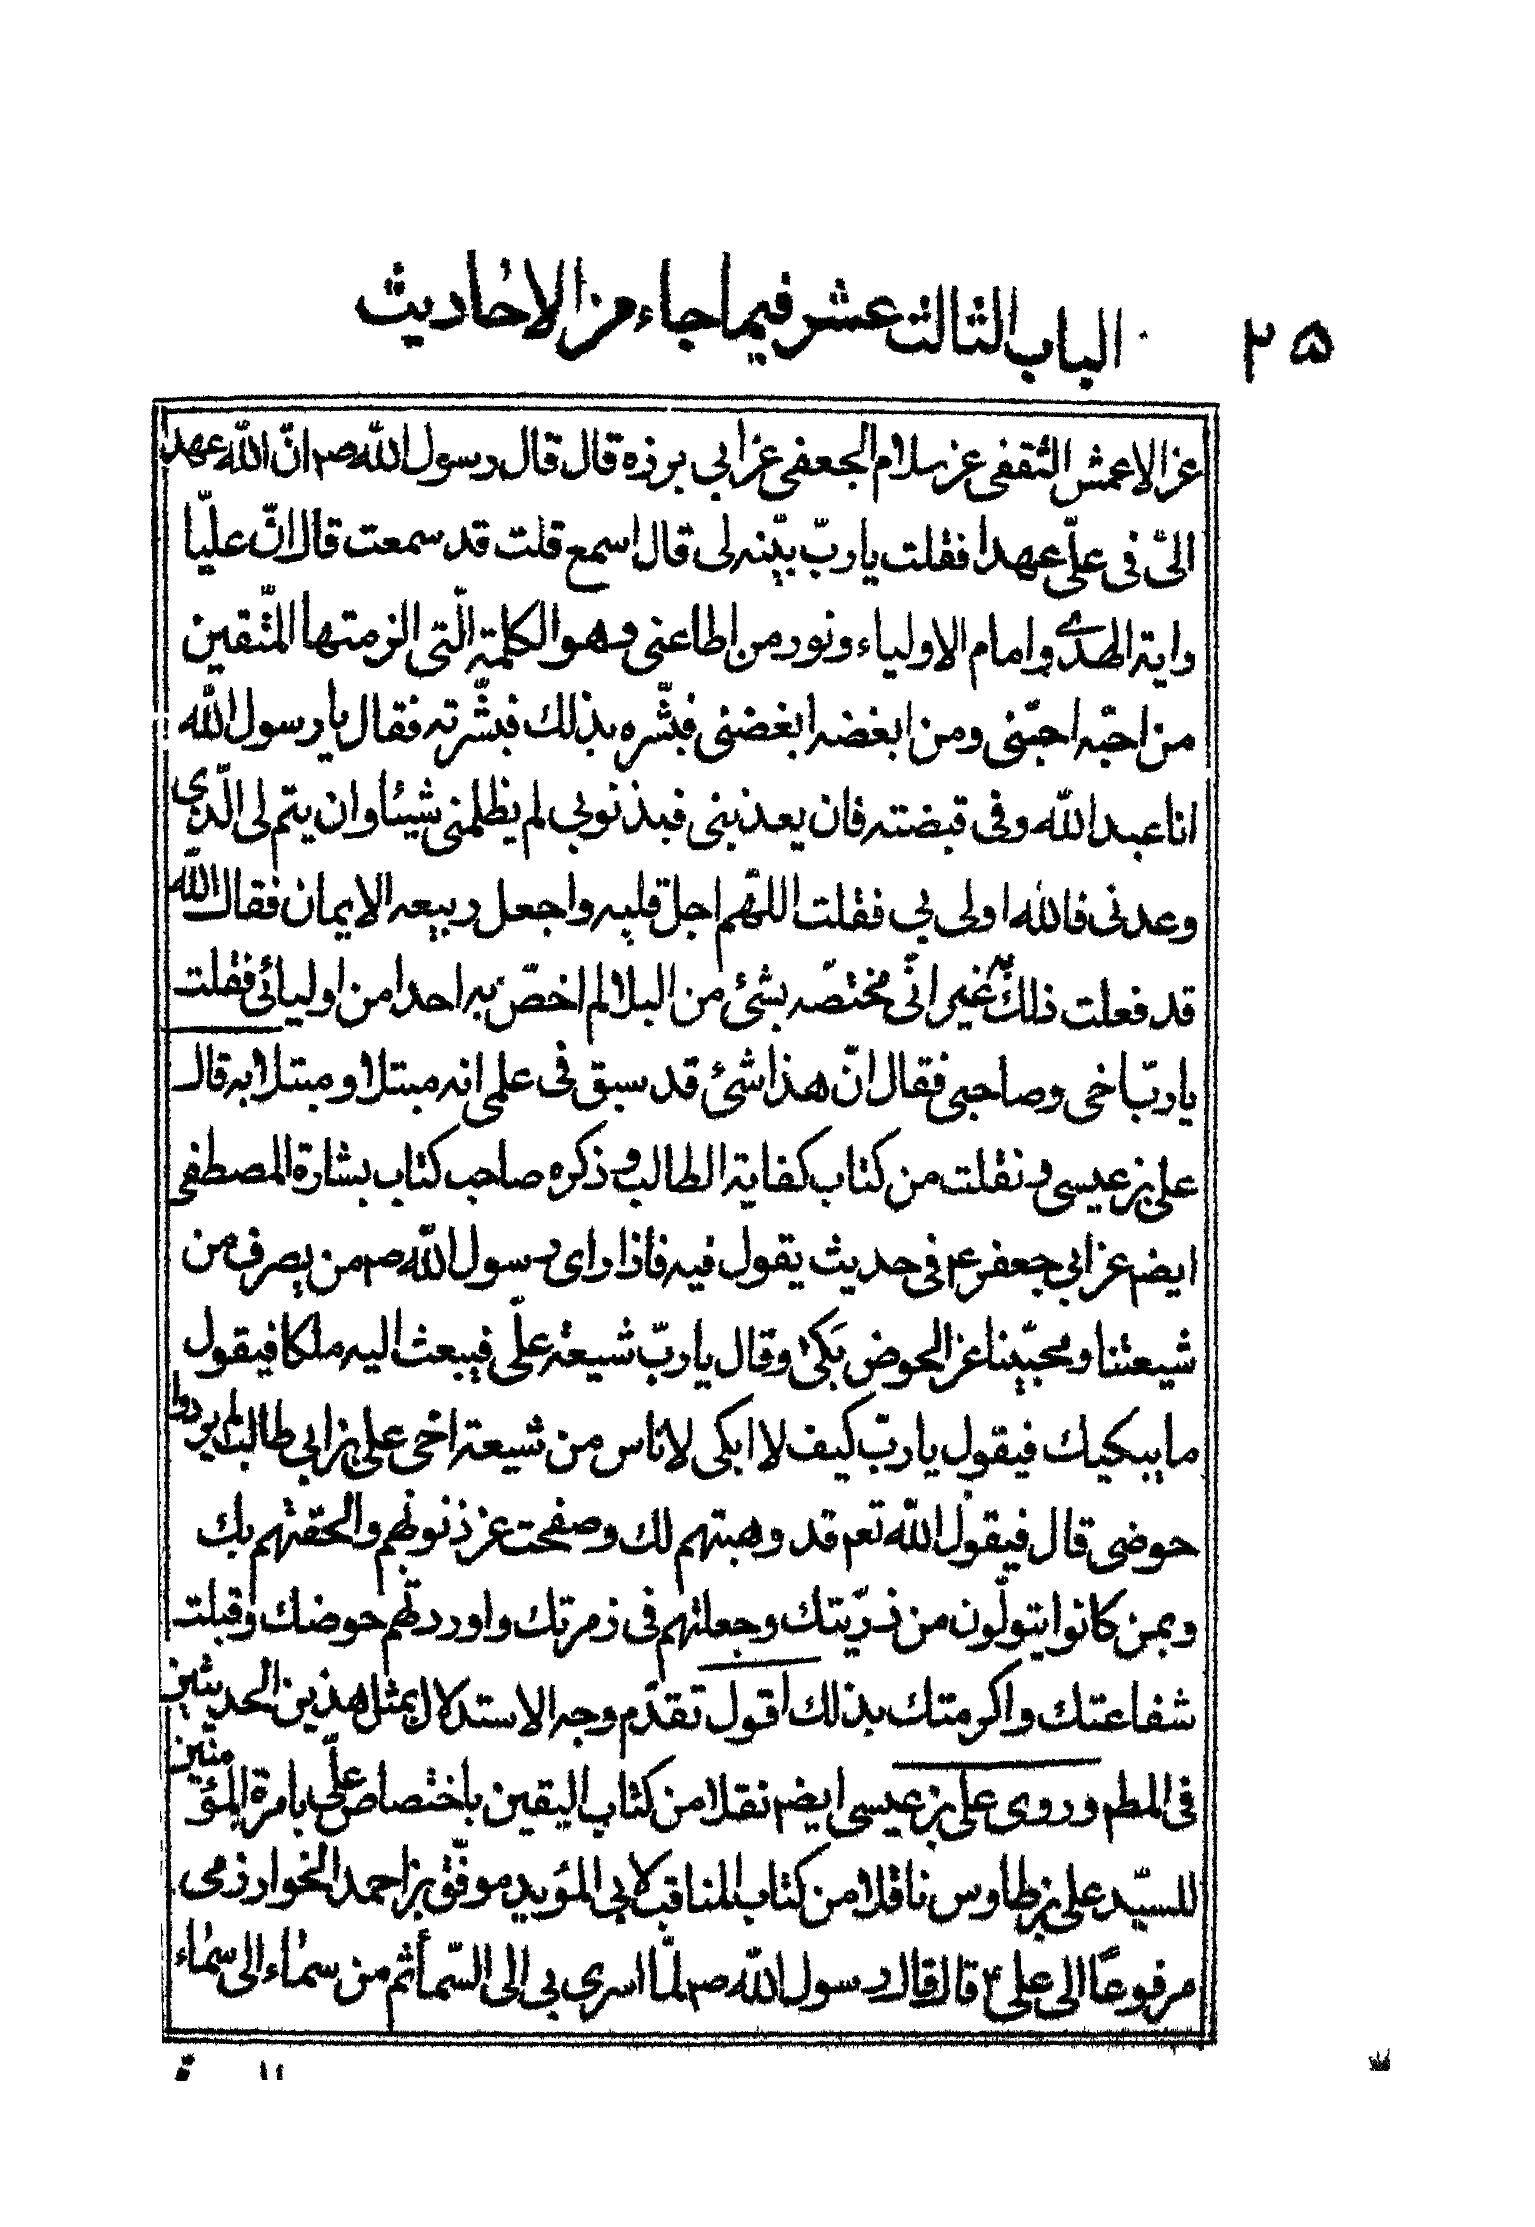 ٢٥
الباب الثالث عشر فيما جاء من الاحاديث
عن الاعمش الثقفى عن سلام الجعفى عن ابي برزه قال قال رسول الله ص انّ الله عهد
الىّ فى علّى عهدا فقلت يا ربّ بيّنه لى قال اسمع قلت قد سمعت قال انّ عليّا
راية الهدى وامام الاولياء ونور من اطاعنى وهو الكلمة الّتى الزمتها المتّقين
من احبّه احبّنى ومن ابغضه ابغضنى فبشّره بذلك فبشّرته فقال يا رسول الله
انا عبد الله وفى قبضته فان يعذبنى فبذنوبي لم يظلمنى شيئا وان يتم لى الّذى
وعدنى فالله اولى بي فقلت اللهّم اجل قلبه واجعل ربيعه الايمان فقال الله
قد فعلت ذلك به غير انّى مختصّه بشئ من البلا لم اخصّ به احدا من اوليائى فقلت
يا ربّ اخى وصاحبى فقال انّ هذا شئ قد سبق فى علمى انه مبتلا ومبتلا به قال
على بن عيسى ونقلت من كتاب كفاية الطالب وذكره صاحب كتاب بشارة المصطفى
ايضم عن ابي جعفر ع فى حديث يقول فيه فاذا راى رسول الله ص من يصرف من
شيعتنا ومحبّينا عن الحوض بكى وقال يا ربّ شيعة علّى فيبعث اليه ملكا فيقول
ما يبكيك فيقول يا ربّ كيف لا ابكى لاناس من شيعة اخى على بن ابي طالب لم يردوا
حوضى قال فيقول الله تعم قد وهبتهم لك وصفحت عن ذنوبهم والحقتهم بك
وبمن كانوا يتولّون من ذرّيتك وجعلتهم فى زمرتك واوردتهم حوضك وقبلت
شفاعتك واكرمتك بذلك اقول تقدّم وجه الاستدلال بمثل هذين الحديثين
فى المطم وروى على بن عيسى ايضم نقلا من كتاب اليقين باختصاص علّى بامرة المؤمنين
للسيّد على بن طاوس ناقلا من كتاب المناقب لابي المؤيد موفّق بن احمد الخوارزمى
مرفوعا الى على ع قال قال رسول الله ص لمّا اسرى بي الى السّمأ ثم من سماء الى سماء